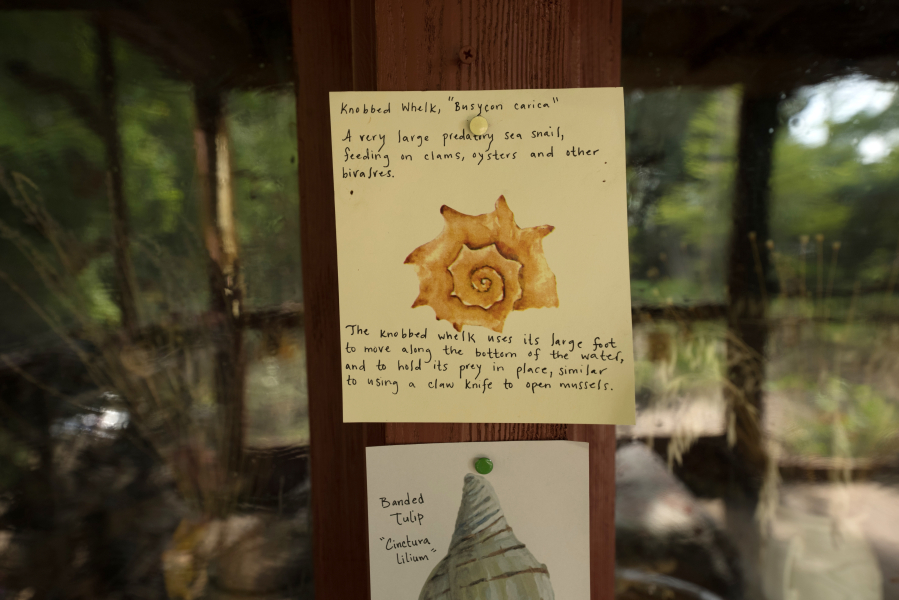 Knobbed Whelk, "Busycon carica"
A very large predatory sea snail,
feeding on clams, oysters and other
bivalves.
The knobbed whelk uses its large foot
to move along the bottom of the water,
and to hold its prey in place, similar
to using a claw knife to open mussels.
Banded
Tulip
"Cinctura
lilium"